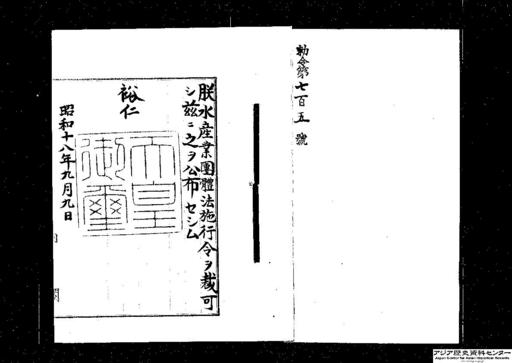 勅令第七百五號
朕水産業團體法施行令ヲ裁可
シ茲ニ之ヲ公布セシム
裕仁
天皇御璽
昭和十八年九月九日
アジア歴史資料センター
Japan Center for Asian Historical Records